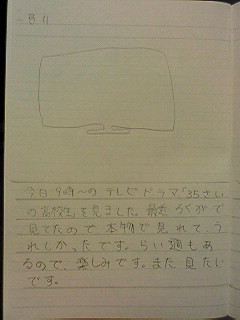 今日9時〜のテレビドラマ「35さい
の高校生」を見ました。最近らくがで
見てたので本物で見れて、う
れしかったです。らい週もあ
るので、楽しみです。また見たい
です。